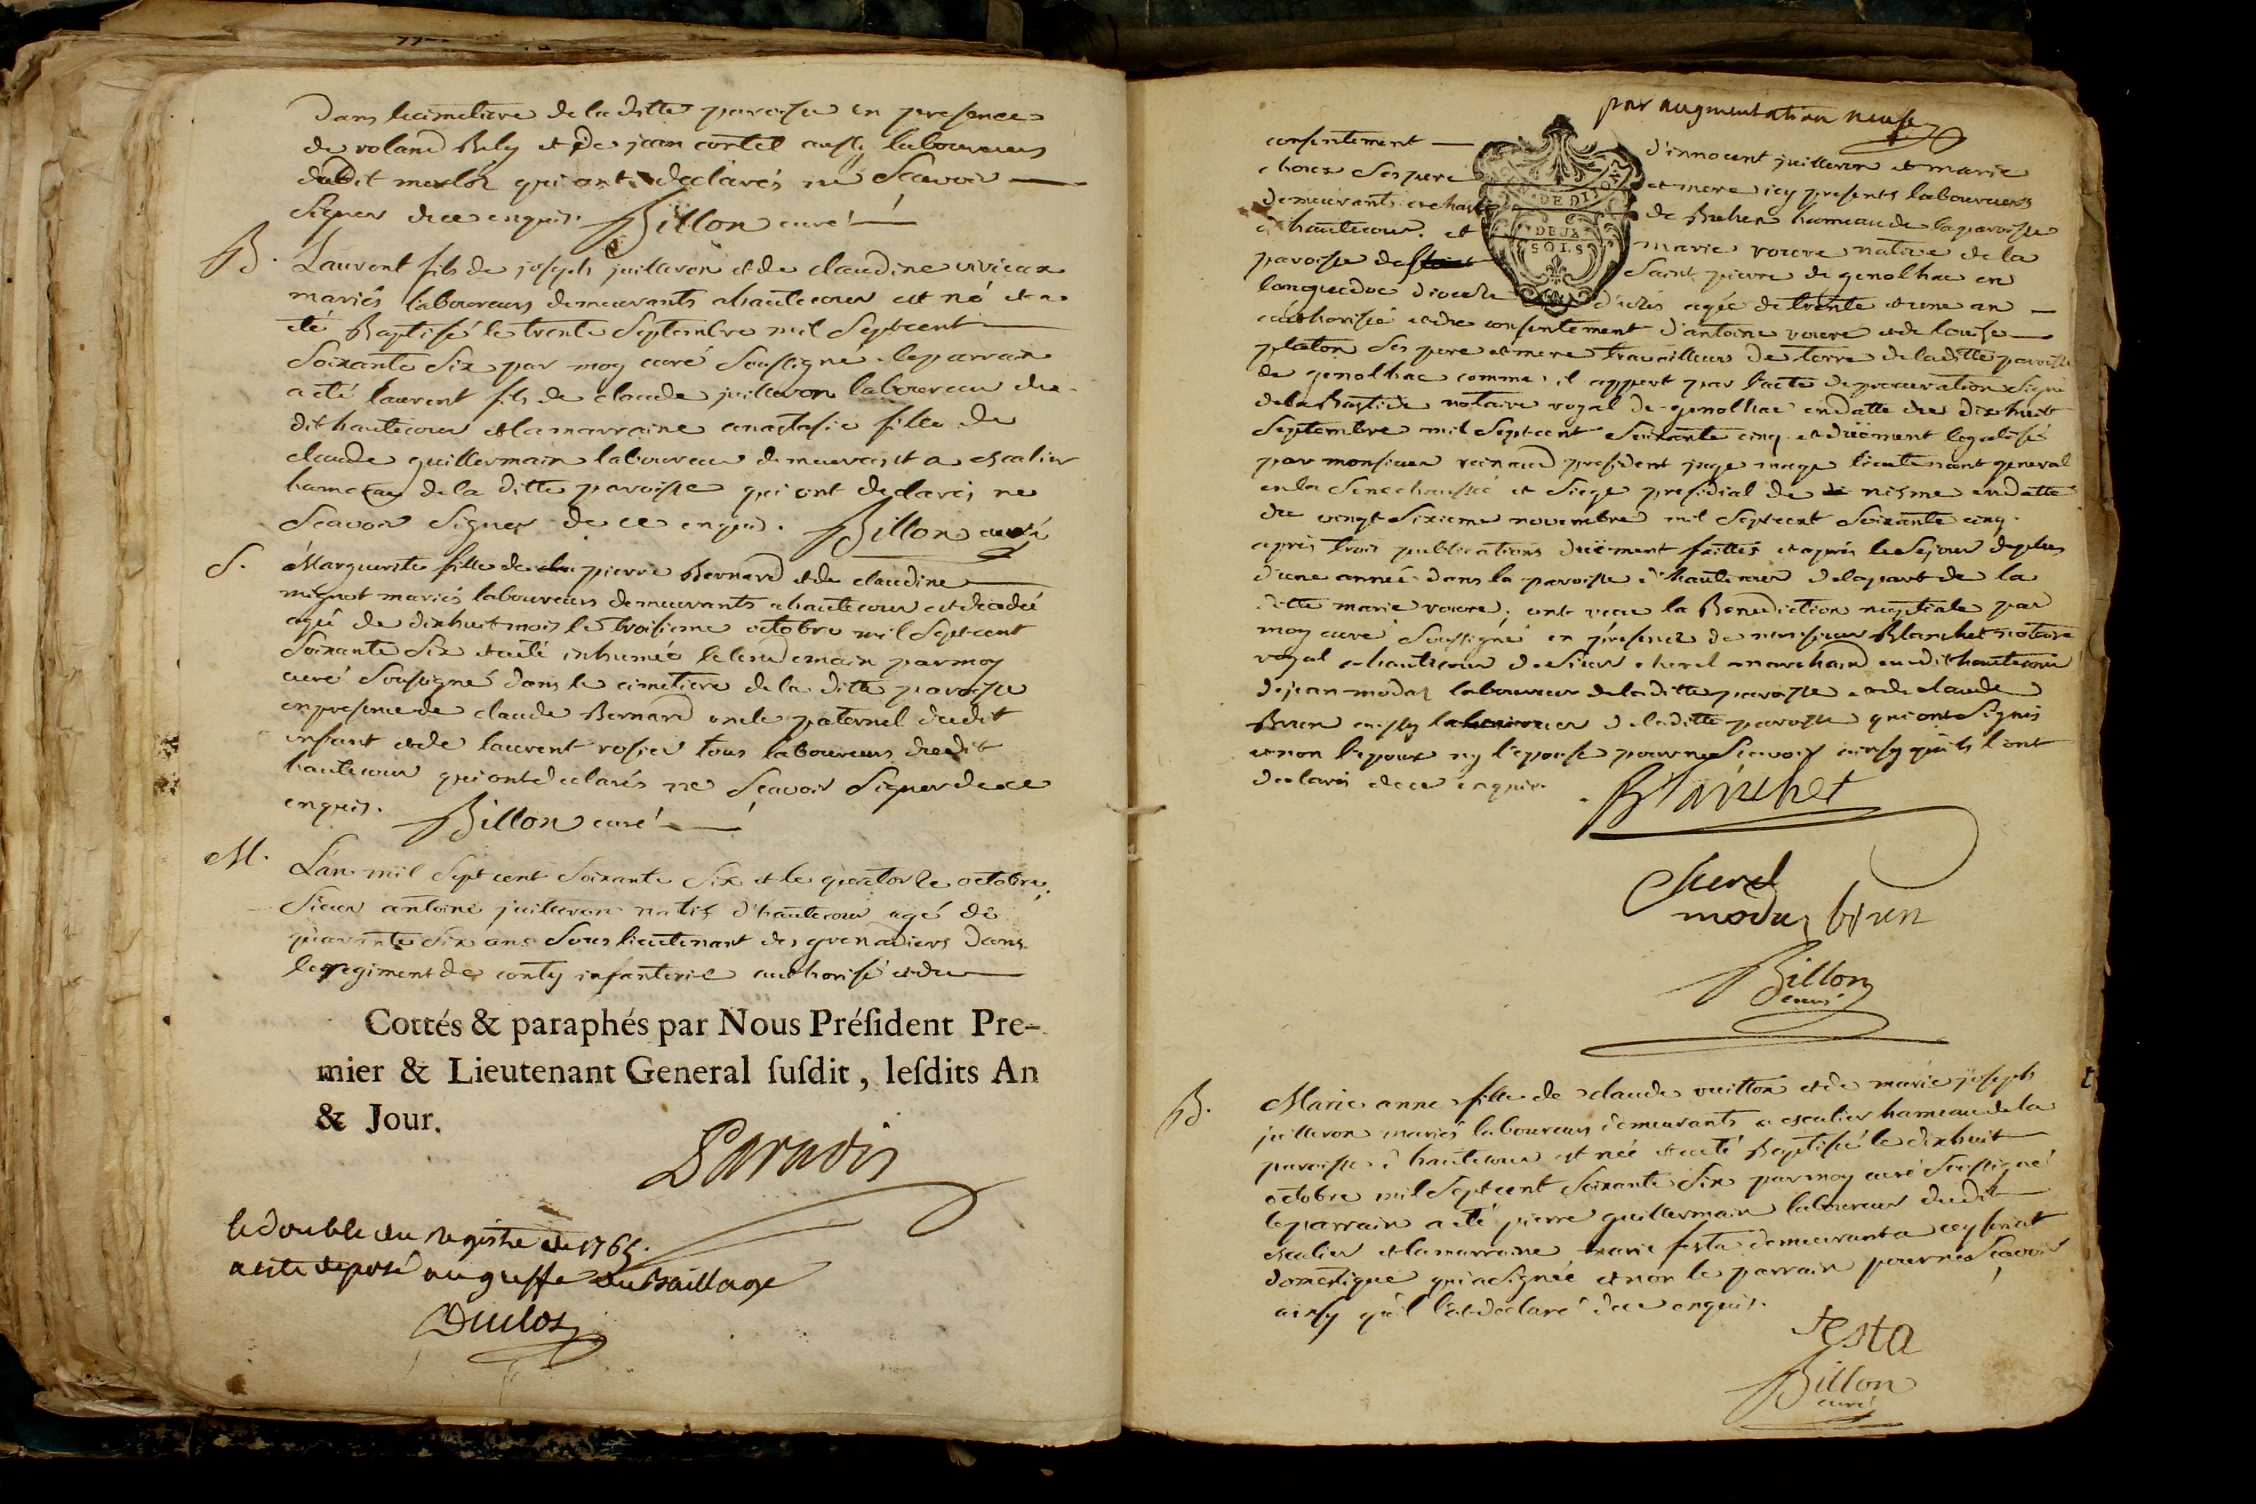 Dans le cimetiere de la ditte paroisse en presence
de roland Bely et de jean cortel aussy laboureurs
dudit qui ont declarés ne Scavoir
Signer de ce enquis. Billon curé
B. Laurent fils de joseph juilleron et de claudine vivieax
mariés laboureurs demeurants a hautecour est né et a
eté Baptisé le trente Septembre mil Sept cent
Soixante Six par moy curé Soussigné. le parrain
a eté laurent fils de claude juilleron laboureur du
dit hautecour et la marraine anastasie fille de
claude guillermain laboureur demeurant a escalier
hameau de la ditte paroisse qui ont declarés ne
Scavoir Signer de ce enquis. Billon curé
S. Marguerite fille de pierre Bernard et de claudine
mignot mariés laboureurs demeurants a hautecour est decedée
agée de dixhuit mois le troisieme octobre mil Sept cent
Soixante Six et a eté inhumée le lendemain par moy
curé Soussigné dans le cimetiere de la ditte paroisse
en presence de claude Bernard oncle paternel dudit
enfant et de laurent rosier tous laboureurs dudit
hautecour qui ont declarés ne Scavoir Signer de ce
enquis. Billon curé
M. L'an mil Sept cent Soixante Six et le quatorze octobre,
Sieur antoine juilleron natif d'hautecour agé de
quarante Six ans Sous lieutenant des grenadiers dans
le regiment de conty infanterie authorisé et du
Cottés & paraphés par Nous Préſident Pre-
mier & Lieutenant General ſuſdit, leſdits An
& Jour.
Paradis
le double du registre de 1765.
a eté deposé au greffe du Baillage
Duclos
par augmentation neuf
consentement d'innocent juilleron et marie
Ses pere et mere icy presents laboureurs
demeurants de Buhen hameau de la paroisse
d'hautecour. et marie rouvre native de la
paroisse de Saint pierre de genolhac en
languedoc diocese d'uzés agée de trente et une an
authorisée et du consentement d'antoine rouvre et de louise
platon Ses pere et mere travailleur de terre de la ditte paroisse
de genolhac comme il appert par l'acte de procuration Signé
de la Bastide notaire royal de genolhac en datte du dixhuit
Septembre mil Sept cent Soixante cinq et düement legalisé
par monsieur reinaud president juge mage lieutenant general
en la Senechaussée et Siege presidial de nisme en datte
du vingt Sixieme novembre mil Sept cent Soixante cinq.
après trois publications düement faittes et après le Sejour de plus
d'une année dans la paroisse d'hautecour de la part de la
ditte marie rouvre; ont recu la Benediction nuptiale par
moy curé Soussigné en presence de monsieur Blanchet notaire
royal a hautecour de Sieur cherel marchand au dit hautecour
de jean modas laboureur de la ditte paroisse et de claude
Brun aussy laboureur de la ditte paroisse qui ont Signés
et non l'epoux ny l'epouse pour ne Scavoir ainsy qu'ils l'ont
declarés de ce enquis.
DE DIJON
DEUX
SOLS
Blanchet
cherel
modas brun
Billon
curé
B. Marie anne fille de claude vuitton et de marie joseph
juilleron mariés laboureurs demeurants a escalier hameau de la
paroisse d'hautecour est née et a eté Baptisée le dixhuit
octobre mil Sept cent Soixante Six par moy curé Soussigné
le parrain a eté pierre guillermain laboureur dudit
escalier et la marraine marie festa demeurant a ceyseriat
domestique qui a Signée et non le parrain pour ne Scavoir
ainsy qu'il l'at declaré de ce enquis.
festa
Billon
curé